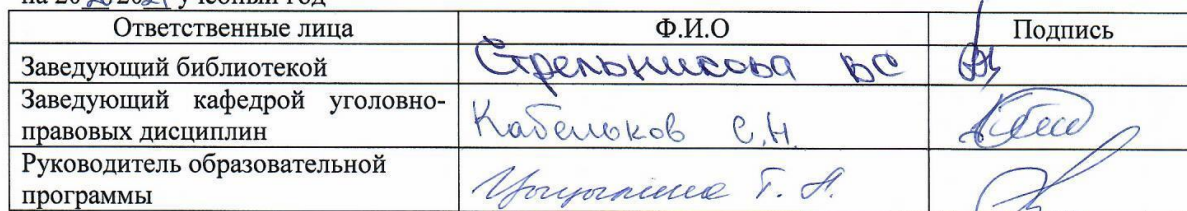 на 2020 2021 учебный год
Ответственные лица Ф.И.О Подпись
Заведующий библиотекой Стрельникова ВС
Заведующий кафедрой уголовно-
правовых дисциплин Кабельков С.Н.
Руководитель образовательной
программы Т. А.